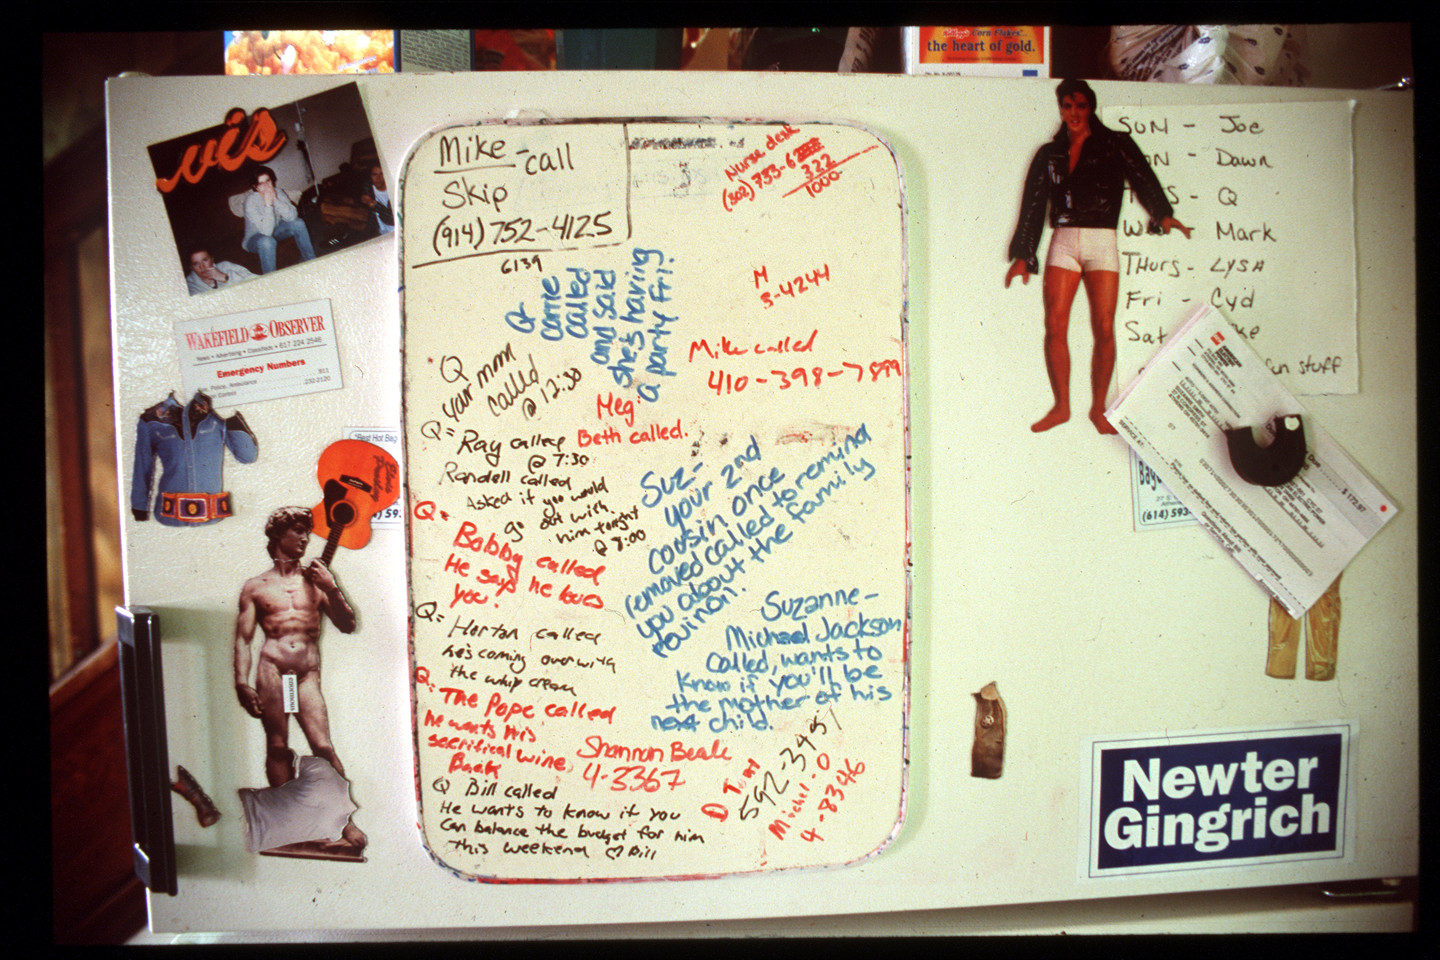 Corn Flakes
the heart of gold.
vis
WAKEFIELD OBSERVER
News • Advertising • Classifieds • 617 224 2546
Emergency Numbers
Fire, Police, Ambulance 911
232-2120
"Best Hot Bag
Elvis
Presley
Mike - call
Skip
(914) 752-4125
6139
Nurse desk
(302) 733-6
322
1000
M
3-4244
Mike called
410-398-7899
Q-
called
and said
she's having
a party Fri.
Q
your mom
called
@ 12:30
Meg:
Beth called.
Q= Ray called
@ 7:30
Randell called
Asked if you would
go out with
him tonight
@ 8:00
Suz-
your 2nd
cousin once
removed called to remind
you about the family
reunion.
Q= Bobby called
He says he loves
you.
Q= Horton called
he's coming over with
the whip cream
Suzanne-
Michael Jackson
Called, wants to
know if you'll be
the mother of his
next child.
Q= The Pope called
he wants his
sacrificial wine
Back
Shannon Beale
4-3367
592-3451
Michel-0
4-8346
Q Bill called
He wants to know if you
can balance the budget for him
this weekend ♡ Bill
SUN - Joe
Dawn
Q
Mark
THURS - LYSA
Fri - Cyd
Sat
fun stuff
SERVICE AT:
$ 172.97
(614) 593
Newter
Gingrich